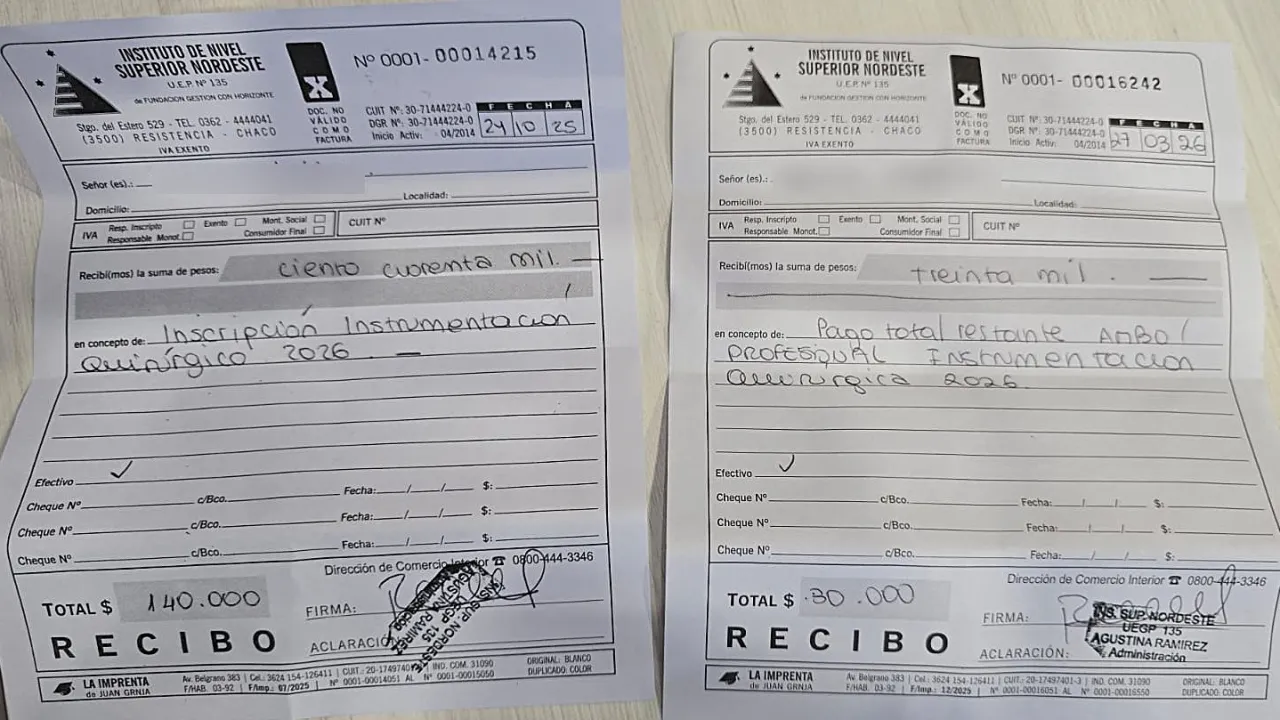 INSTITUTO DE NIVEL
SUPERIOR NORDESTE
U.E.P. Nº 135
de FUNDACION GESTION CON HORIZONTE
Stgo. del Estero 529 - TEL. 0362 - 4444041
(3500) RESISTENCIA - CHACO
IVA EXENTO
X
DOC. NO
VÁLIDO
COMO
FACTURA
Nº 0001- 00014215
CUIT Nº: 30-71444224-0
DGR Nº: 30-71444224-0
Inicio Activ: 04/2014
FECHA
24 10 25
Señor (es).:
Domicilio: Localidad:
IVA
Resp. Inscripto Exento Mont. Social
Responsable Monot. Consumidor Final
CUIT Nº
Recibí(mos) la suma de pesos: ciento cuarenta mil. —
en concepto de: Inscripción Instrumentacion
Quirúrgico 2026. —
Efectivo ✓
Cheque Nº c/Bco. Fecha: / / $:
Cheque Nº c/Bco. Fecha: / / $:
Cheque Nº c/Bco. Fecha: / / $:
Dirección de Comercio Interior ☎ 0800-444-3346
TOTAL $ 140.000
FIRMA:
RECIBO
ACLARACIÓN
INS. SUP. NORDESTE
UEGP 135
AGUSTINA RAMIREZ
LA IMPRENTA
de JUAN GRNJA
Av. Belgrano 383 | Cel.: 3624 154-126411 | CUIT.: 20-1749740 | IND. COM. 31090
F/HAB. 03-92 | F/Imp.: 07/2025 | Nº 0001-00014051 AL Nº 0001-00015050
ORIGINAL: BLANCO
DUPLICADO: COLOR
INSTITUTO DE NIVEL
SUPERIOR NORDESTE
U.E.P. Nº 135
de FUNDACION GESTION CON HORIZONTE
Stgo. del Estero 529 - TEL. 0362 - 4444041
(3500) RESISTENCIA - CHACO
IVA EXENTO
X
DOC. NO
VÁLIDO
COMO
FACTURA
Nº 0001- 00016242
CUIT Nº: 30-71444224-0
DGR Nº: 30-71444224-0
Inicio Activ: 04/2014
FECHA
27 03 26
Señor (es).:
Domicilio: Localidad:
IVA
Resp. Inscripto Exento Mont. Social
Responsable Monot. Consumidor Final
CUIT Nº
Recibí(mos) la suma de pesos: treinta mil. —
en concepto de: Pago total restante AMBO /
PROFESIONAL INSTRUMENTACION
Quirurgica 2026.
Efectivo ✓
Cheque Nº c/Bco. Fecha: / / $:
Cheque Nº c/Bco. Fecha: / / $:
Cheque Nº c/Bco. Fecha: / / $:
Dirección de Comercio Interior ☎ 0800-444-3346
TOTAL $ 30.000
FIRMA:
RECIBO
ACLARACIÓN:
INS. SUP. NORDESTE
UEGP 135
AGUSTINA RAMIREZ
Administración
LA IMPRENTA
de JUAN GRNJA
Av. Belgrano 383 | Cel.: 3624 154-126411 | CUIT.: 20-17497401-3 | IND. COM. 31090
F/HAB. 03-92 | F/Imp.: 12/2025 | Nº 0001-00016051 AL Nº 0001-00016550
ORIGINAL: BLANCO
DUPLICADO: COLOR